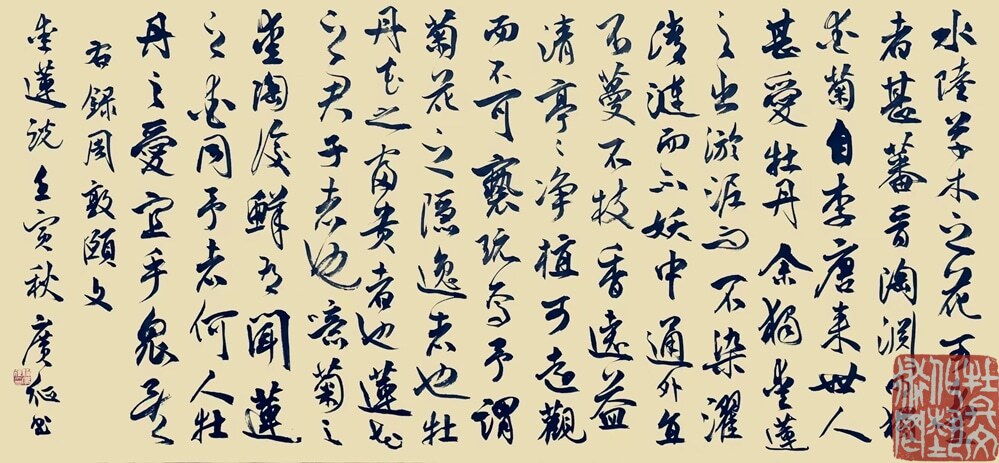 水陸草木之花可
者甚蕃晉陶淵明獨
愛菊自李唐来世人
甚愛牡丹余獨愛蓮
之出淤泥而不染濯
清漣而不妖中通外直
不蔓不枝香遠益
清亭々净植可遠觀
而不可褻玩焉予謂
菊花之隱逸者也牡
丹花之富貴者也蓮花
之君子者也噫菊之
愛陶後鮮有聞蓮
之愛同予者何人牡
丹之愛宜乎眾矣
右録周敦頤文
愛蓮説壬寅秋廣征书